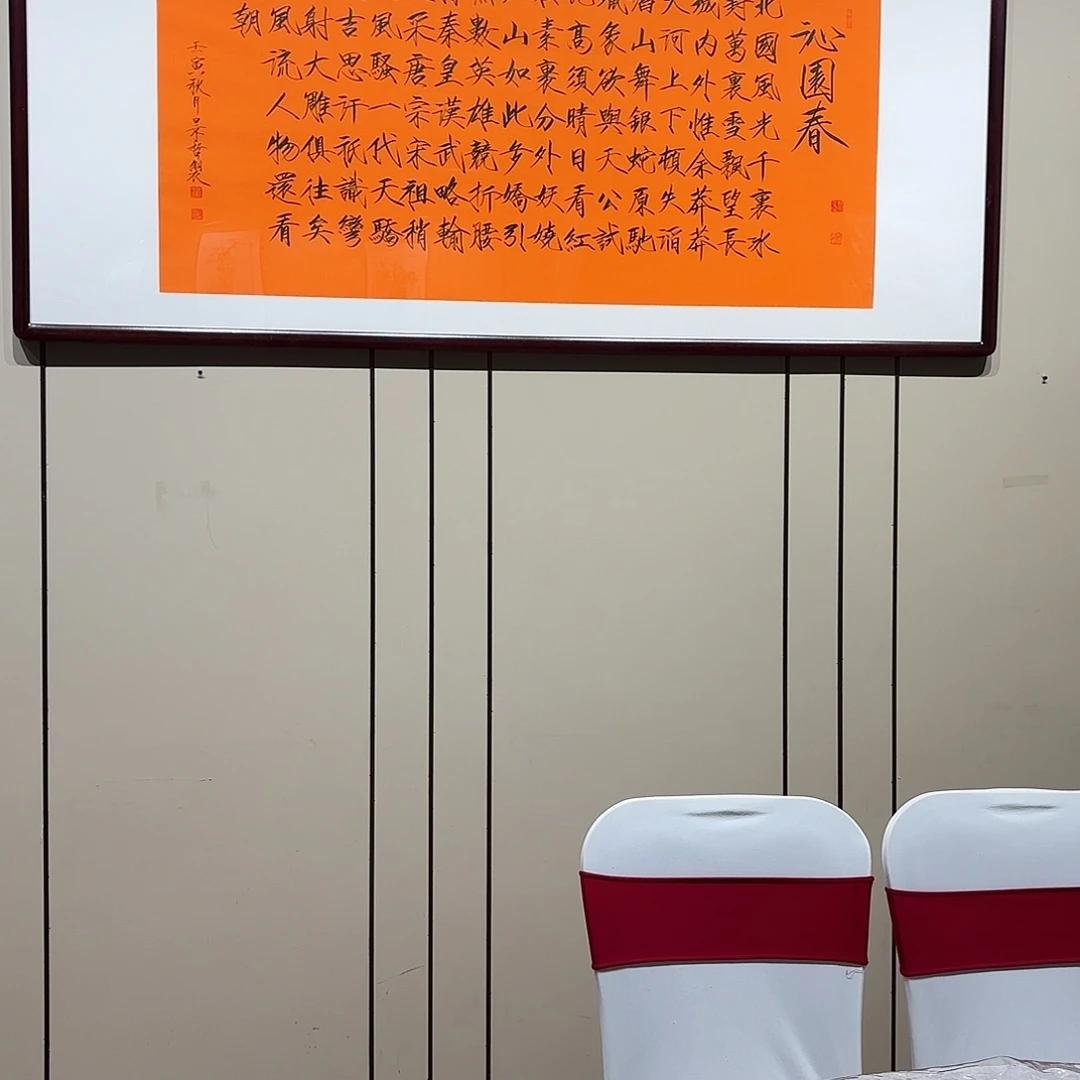 沁園春
北國風光千裏冰
萬裏雪飄望長
城内外惟余莽莽
河上下頓失滔
滔山舞銀蛇原馳
象欲與天公試
高須晴日看紅
素裹分外妖嬈
山如此多嬌引
數英雄競折腰
秦皇漢武略輸
采唐宗宋祖稍
風騷一代天驕
吉思汗祇識彎
射大雕俱往矣
風流人物還看
朝
壬寅秋月